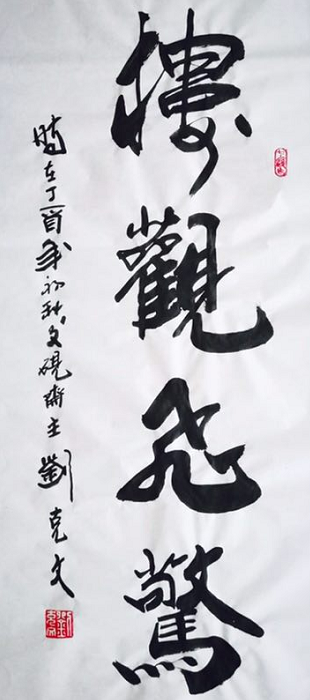 樓觀飛驚
時在丁酉年初秋文硯齋主劉克文